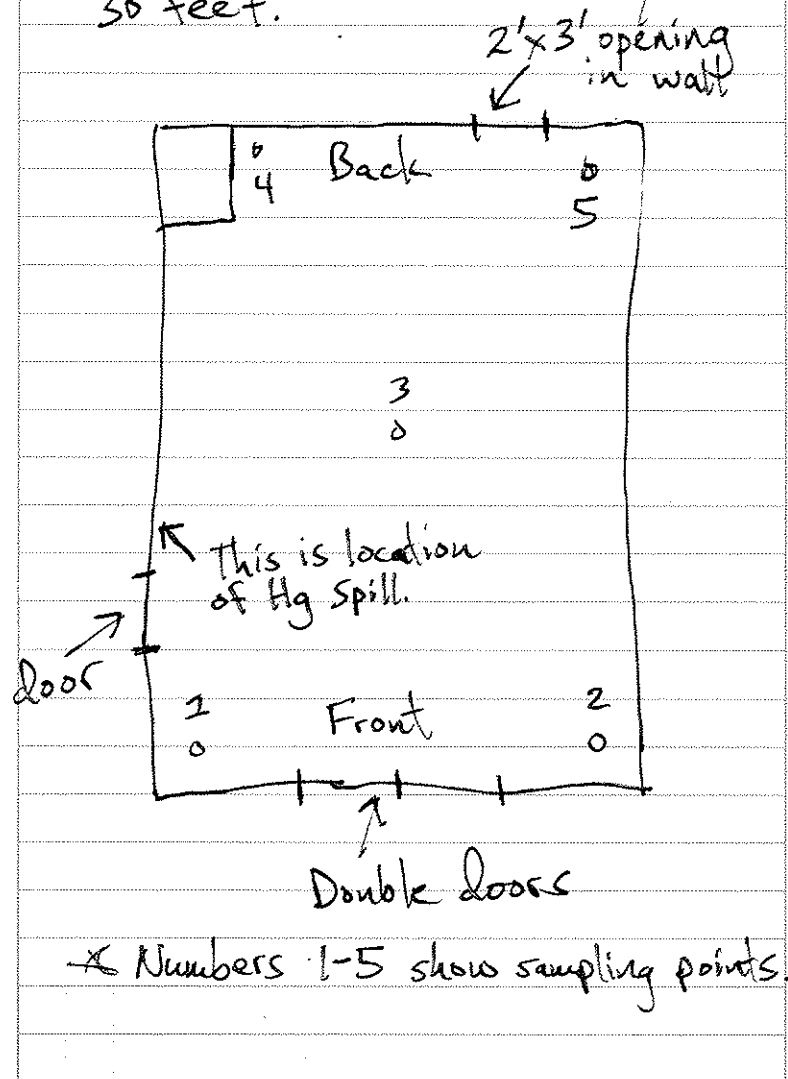 50 feet.
2'x3' opening
in wall
Back
4
5
3
This is location
of Hg Spill.
door
1
Front
2
Double doors
* Numbers 1-5 show sampling points.